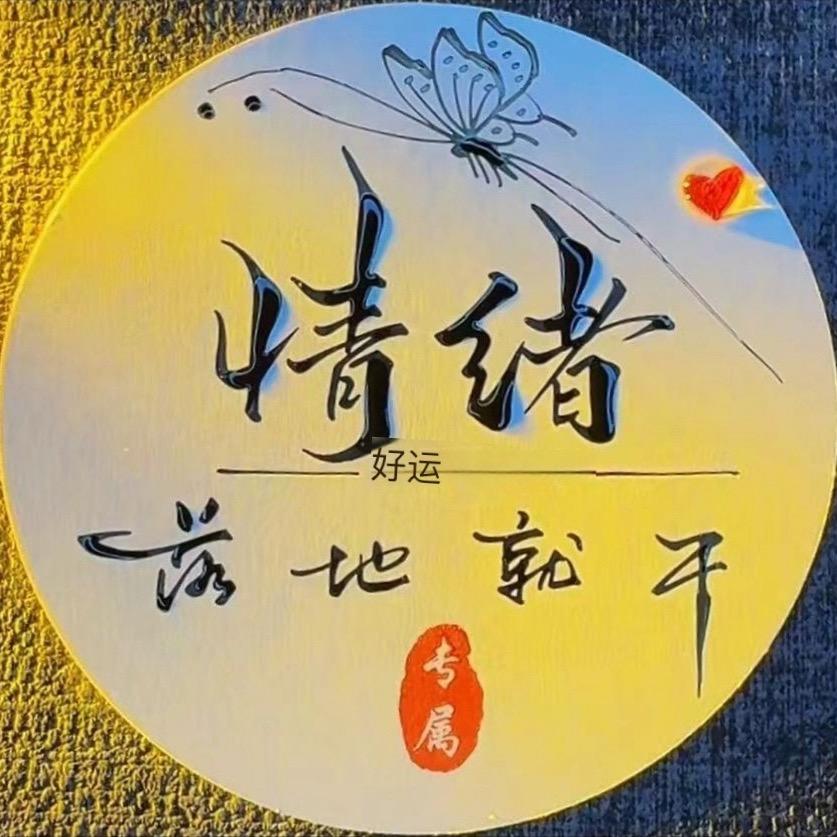 情绪
好运
落地就干
专属